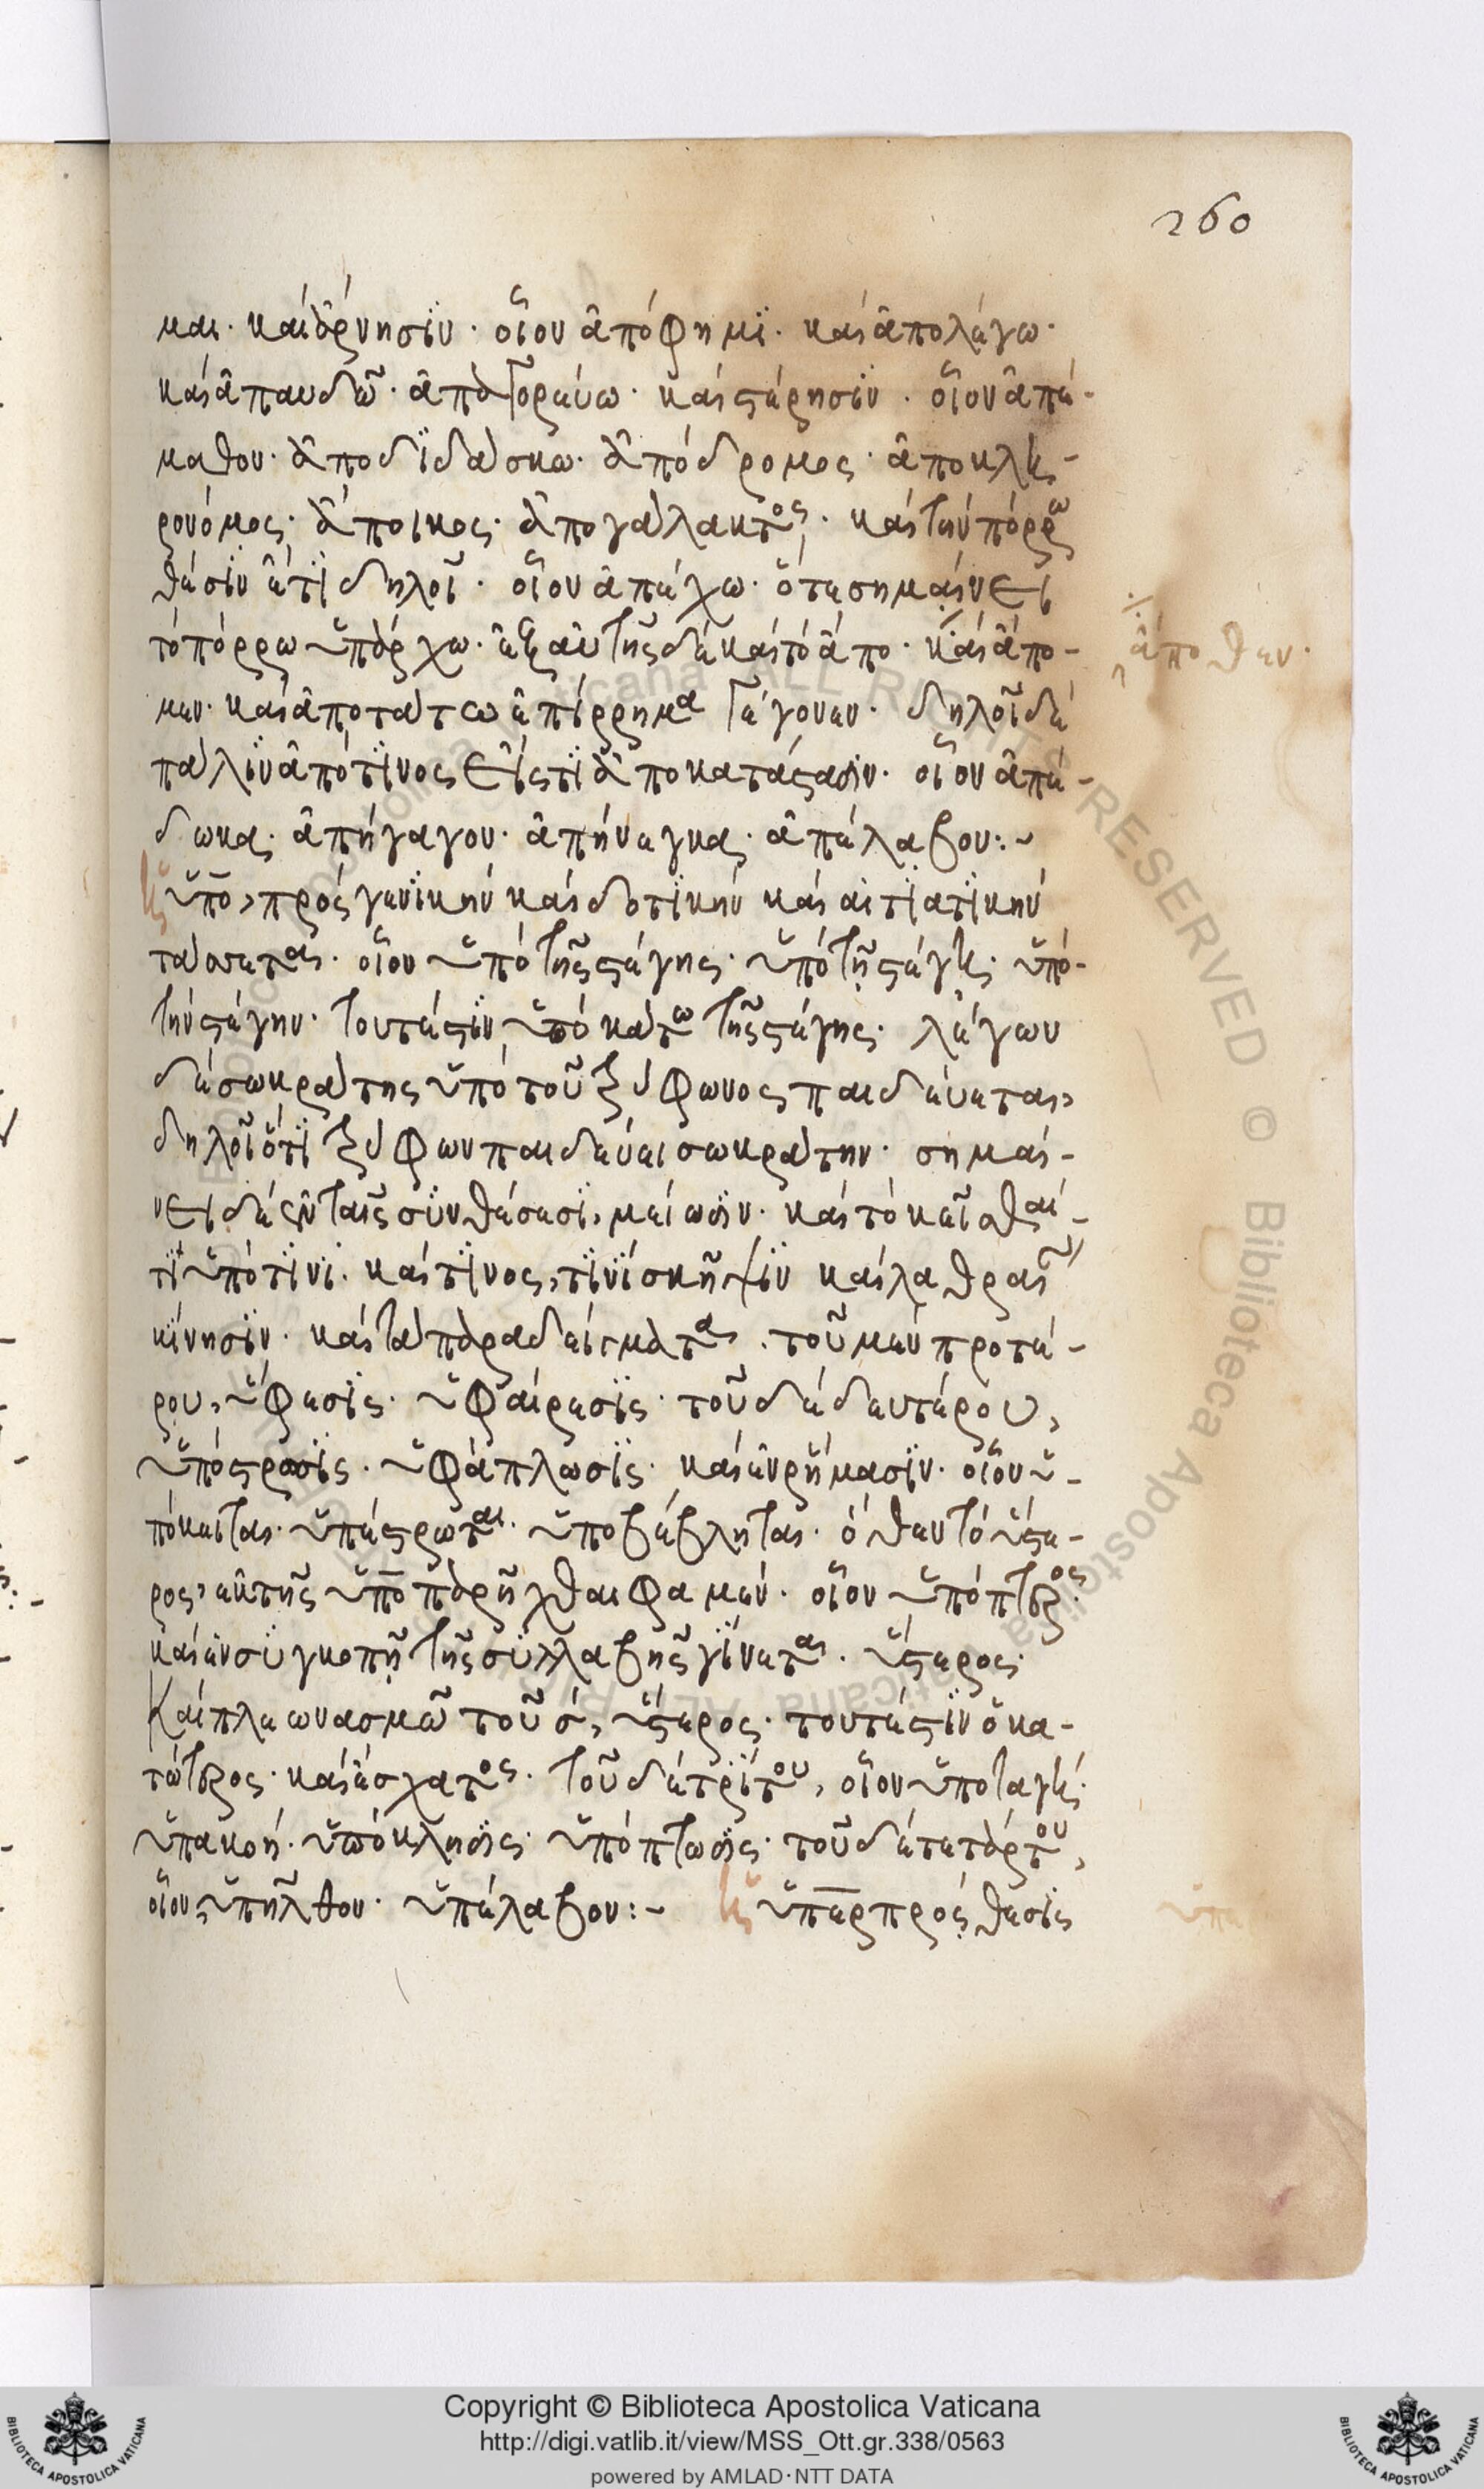 260
μαι· καὶ ἄρνησιν· οἷον ἀπόφημι· καὶ ἀπολέγω·
καὶ ἀπαυδῶ· ἀπαγορεύω· καὶ στέρησιν· οἷον ἀπέ-
μαθον· ἀποδιδάσκω· ἀπόδρομος· ἀποκλη-
ρονόμος· ἄποικος· ἀπογάλακτος· καὶ τὴν πόρρω
θέσιν ἔτι δηλοῖ· οἷον ἀπέχω· ὅτε σημαίνει
τὸ πόρρω ὑπάρχω· ἐξ αὐτῆς δὲ καὶ τὸ ἄπο· καὶ ἄπο-
ἄποθεν·
μεν· καὶ ἀποτάτω ἐπίρρημα γέγονεν· δηλοῖ δὲ
πάλιν ἀπό τινος εἴς τι ἀποκατάστασιν· οἷον ἀπέ-
δωκα· ἀπήγαγον· ἀπήνεγκα· ἀπέλαβον:~
ὑπὸ, πρὸς γενικὴν καὶ δοτικὴν καὶ αἰτιατικὴν
τάσσεται· οἷον ὑπὸ τῆς στέγης· ὑπὸ τῇ στέγῃ· ὑπὸ
τὴν στέγην· τουτέστιν ὑποκάτω τῆς στέγης· λέγων
δὲ σωκράτης ὑπὸ τοῦ ξενοφῶνος παιδεύεται,
δηλοῖ ὅτι ξενοφῶν παιδεύει σωκράτην· σημαί-
νει δὲ ἐν ταῖς συνθέσεσι, μείωσιν· καὶ τὸ κεῖσθαί
τι ὑπό τινι· καὶ τινος, τινὶ σκῆψιν καὶ λαθραίαν
κίνησιν· καὶ τὰ παραδείγματα· τοῦ μὲν προτέ-
ρου, ὕφεσις· ὑφαίρεσις· τοῦ δὲ δευτέρου,
ὑπόστρωσις· ὑφάπλωσις· καὶ ἐν ῥήμασιν· οἷον ὑ-
πόκειται· ὑπέστρωται· ὑποβέβληται· ὅθεν τὸ ὕστε-
ρος, ἐκ τῆς ὑπὸ παρῆχθαι φαμέν· οἷον ὑπότερος·
καὶ ἐν συγκοπῇ τῆς συλλαβῆς γίνεται· ὕτερος·
Καὶ πλεωνασμῶ τοῦ σ, ὕστερος· τουτέστιν ὁ κα-
τώτερος· καὶ ἔσχατος· τοῦ δὲ τρίτου, οἷον ὑποταγή·
ὑπακοή· ὑπόκλησις· ὑπόπτωσις· τοῦ δὲ τετάρτου,
οἷον, ὑπῆλθον· ὑπέλαβον:~ ὑπὲρ πρόθεσις
Copyright © Biblioteca Apostolica Vaticana
http://digi.vatlib.it/view/MSS_Ott.gr.338/0563
powered by AMLAD·NTT DATA
BIBLIOTECA APOSTOLICA VATICANA
BIBLIOTECA APOSTOLICA VATICANA